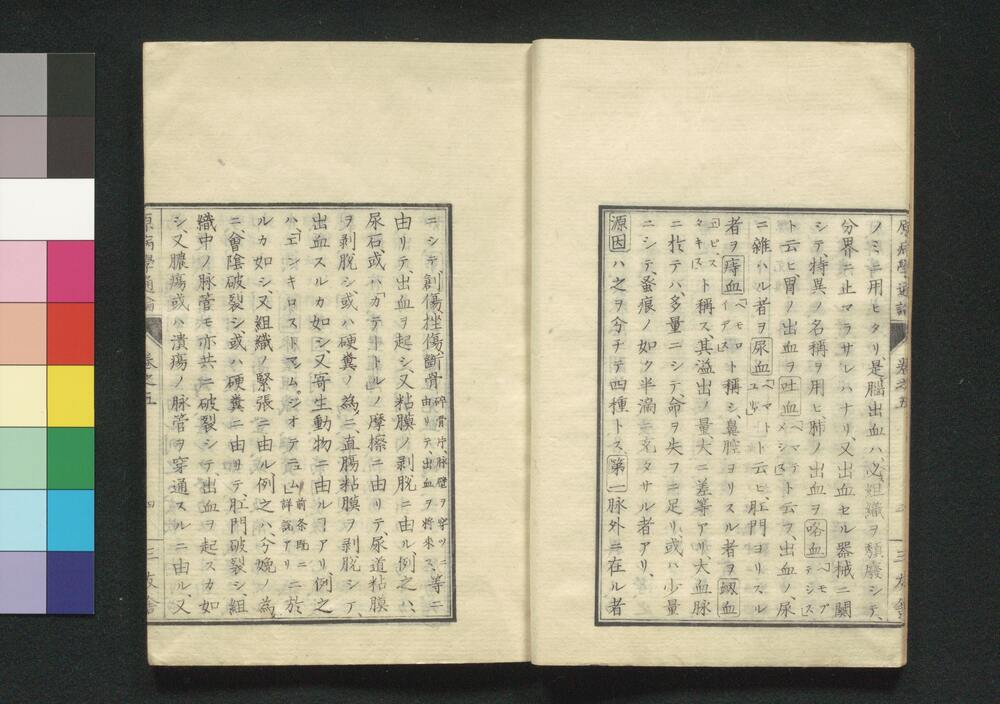 原病學通論 卷之五 三友舍
ノミニ用ヒタリ、是腦出血ハ、必組織ヲ頽廢シテ、
分界ニ止マラサレハナリ、又出血セル器械ニ關
シテ、特異ノ名稱ヲ用ヒ肺ノ出血ヲ咯血「ヘモプテシス」
ト云ヒ胃ノ出血ヲ吐血「ヘマテメシス」ト云フ、出血ノ、尿
ニ雜ハル者ヲ尿血「ヘマトユリー」ト云ヒ、肛門ヨリスル
者ヲ痔血「ヘモロイデス」ト稱シ鼻腔ヨリスル者ヲ衂血
「エピスタキス」ト稱ス其溢出ノ量大ニ差等アリ、大血脉
ニ於テハ、多量ニシテ、命ヲ失フニ足リ、或ハ少量
ニシテ、蚤痕ノ如ク半滴ニ充タサル者アリ、
源因ハ之ヲ分チテ四種トス第一脉外ニ在ル者
ニシテ創傷挫傷、斷骨碎骨片脉壁ヲ穿ツニ由リテ、出血ヲ將來ス、等ニ
由リテ、出血ヲ起シ、又粘膜ノ剥脱ニ由ル、例之ハ、
尿石、或ハ「カテートル」ノ摩擦ニ由リテ、尿道粘膜
ヲ剥脱シ或ハ硬糞ノ爲ニ、直腸粘膜ヲ剥脱シテ、
出血スルカ如シ、又寄生動物ニ由ルヿアリ例之
ハ、「エンキロストマム。ジオデニュム」前条既ニ詳説アリニ於
ルカ如シ、又組織ノ緊張ニ由ル例之ハ、分娩ノ爲
ニ、會陰破裂シ、或ハ硬糞ニ由ヨテ、肛門破裂シ、組
織中ノ脉管モ亦共ニ破裂シテ、出血ヲ起スカ如
シ、又膿瘍或ハ潰瘍ノ脉管ヲ穿通スルニ由ル、又
原病學通論 卷之五 四 三友舍